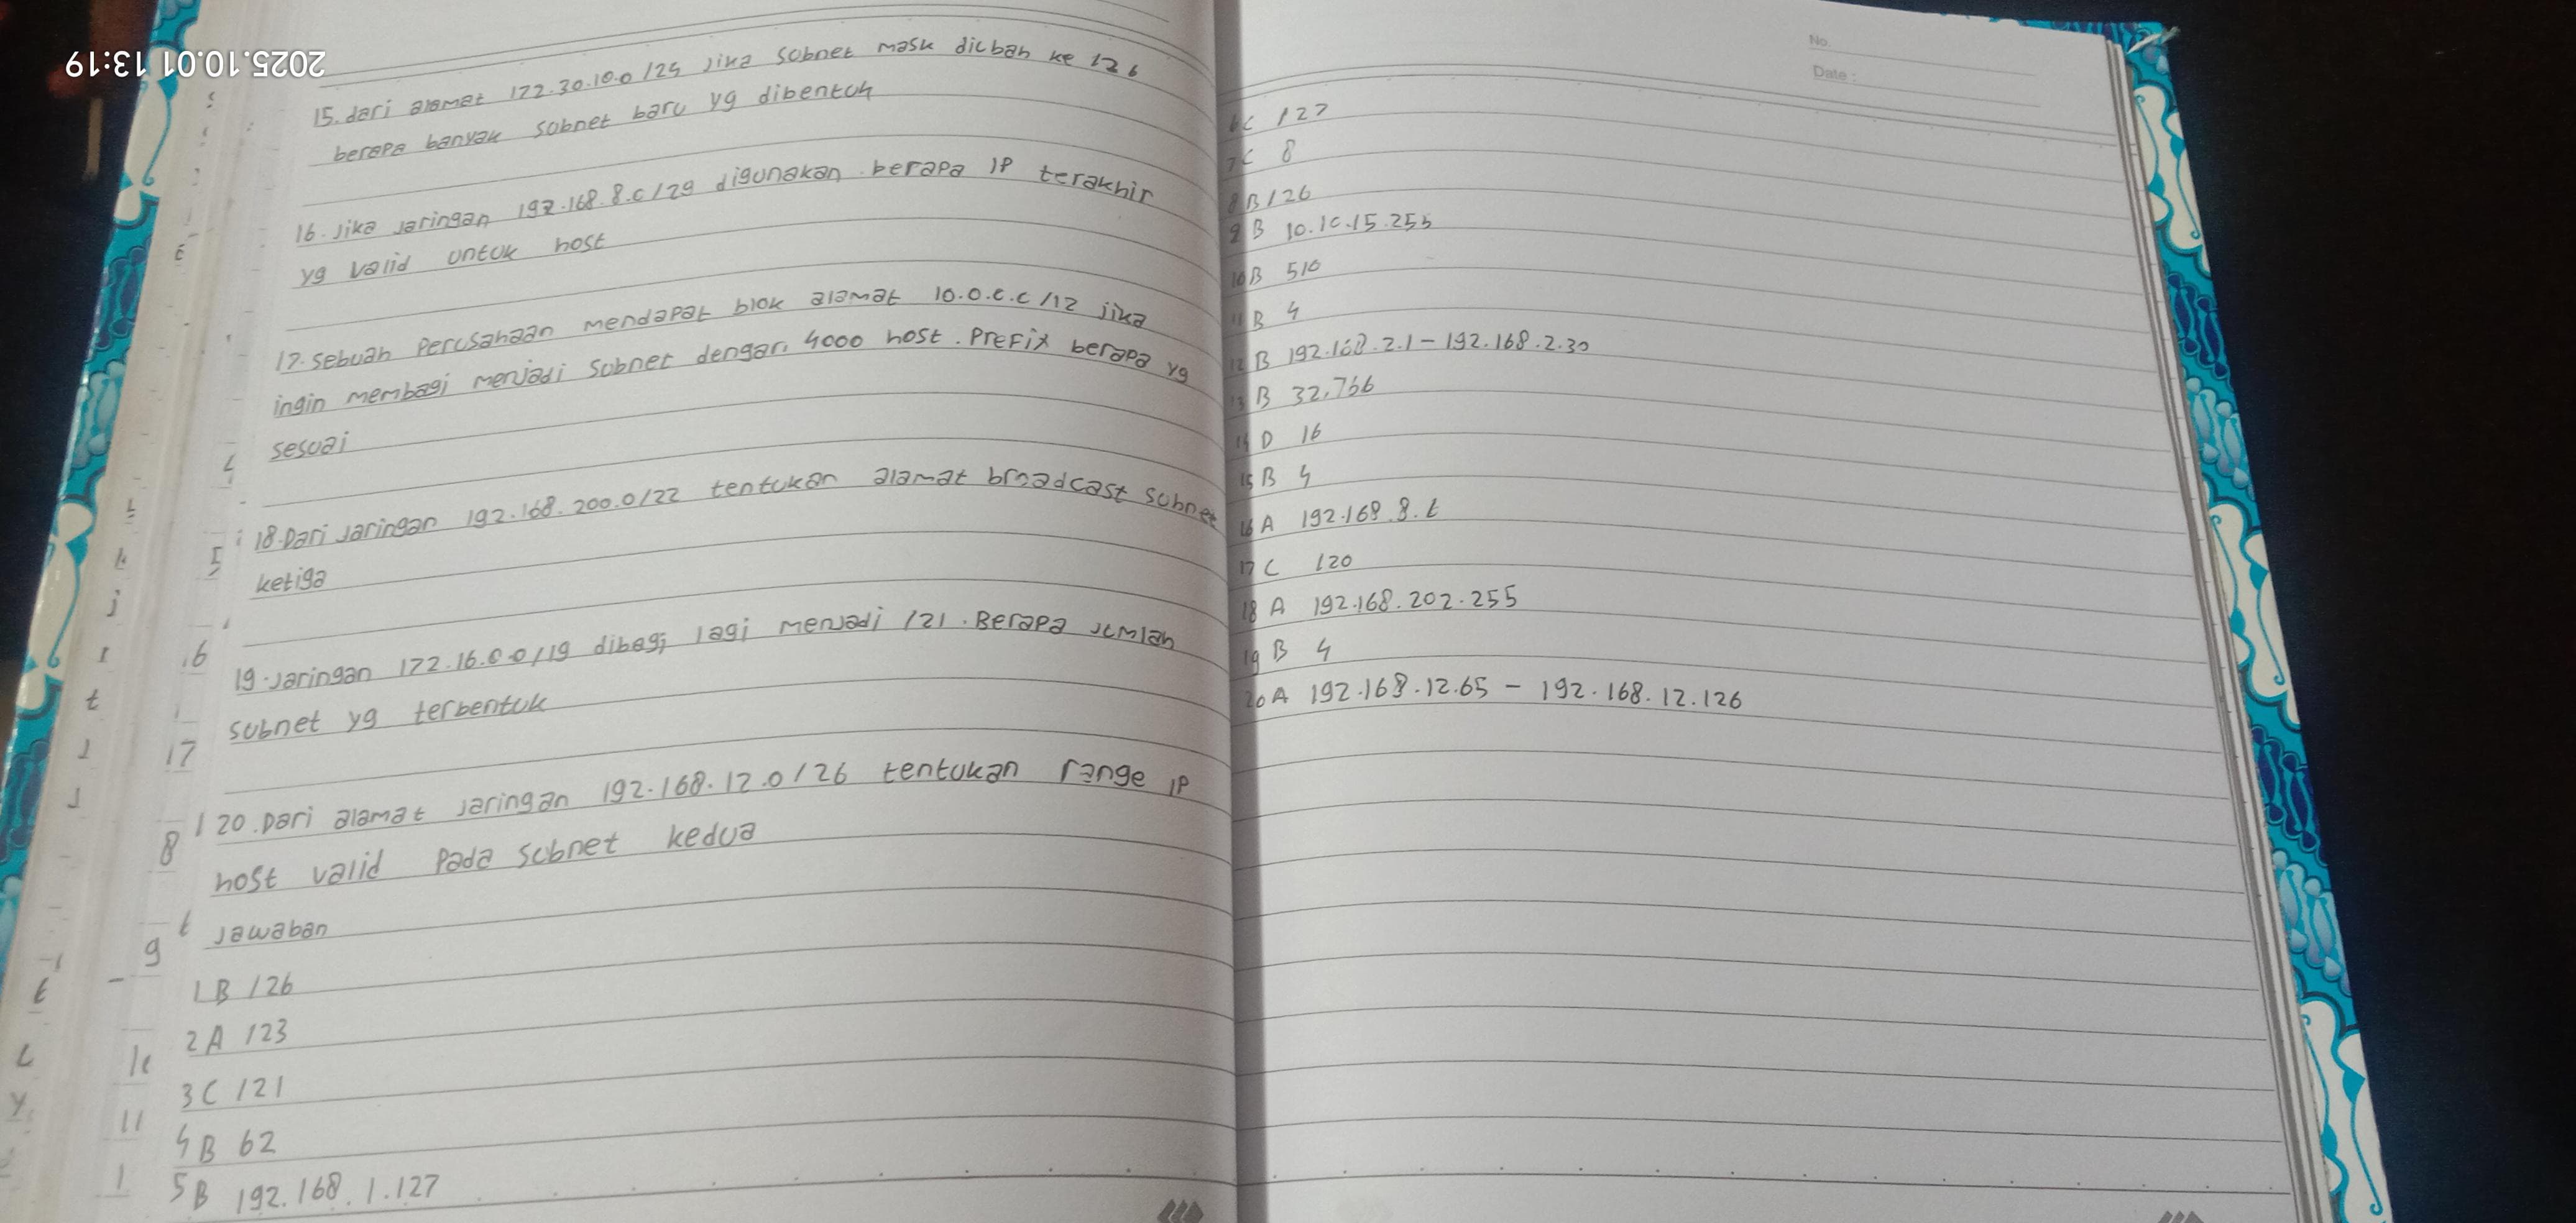 2025.10.01 13:19
15. dari alamat 172.30.10.0 /24 Jika subnet mask diubah ke /26
berapa banyak subnet baru yg dibentuk
16. Jika Jaringan 192.168.8.0/29 digunakan. berapa IP terakhir
yg valid untuk host
17. sebuah Perusahaan mendapat blok alamat 10.0.0.0 /12 jika
ingin membagi menjadi subnet dengan 4000 host. Prefix berapa yg
sesuai
18. Dari Jaringan 192.168.200.0/22 tentukan alamat broadcast subnet
ketiga
19. Jaringan 172.16.0.0/19 dibagi lagi menjadi /21. Berapa jumlah
subnet yg terbentuk
20. Dari alamat Jaringan 192.168.12.0/26 tentukan range IP
host valid Pada subnet kedua
Jawaban
1 B /26
2 A /23
3 C /21
4 B 62
5 B 192.168.1.127
No.
Date :
6 C /27
7 C 8
8 B /26
9 B 10.10.15.255
10 B 510
11 B 4
12 B 192.168.2.1 - 192.168.2.30
13 B 32.766
14 D 16
15 B 4
16 A 192.168.8.6
17 C /20
18 A 192.168.202.255
19 B 4
20 A 192.168.12.65 - 192.168.12.126